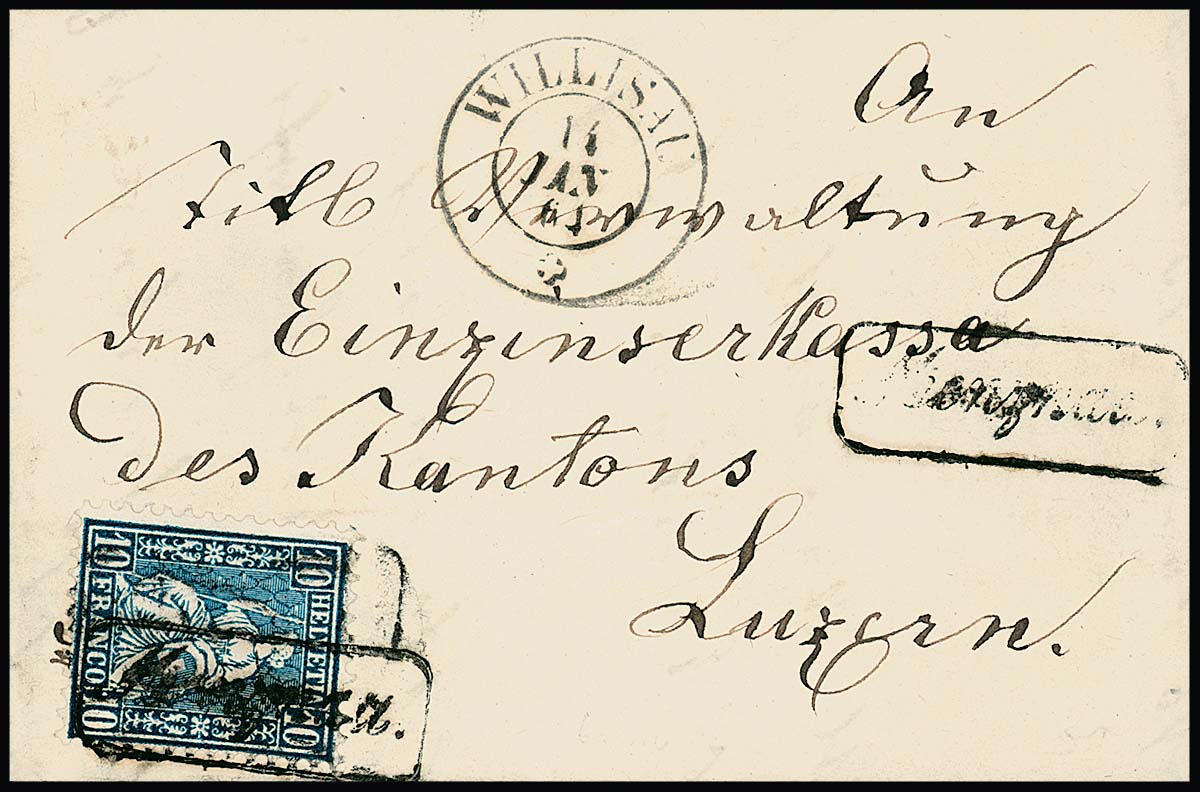 WILLISAU
14
JAN
An
Titl Verwaltung
der Einzinserkassa
des Kantons
Luzern.
10 HELVETIA 10
10 FRANCO 10